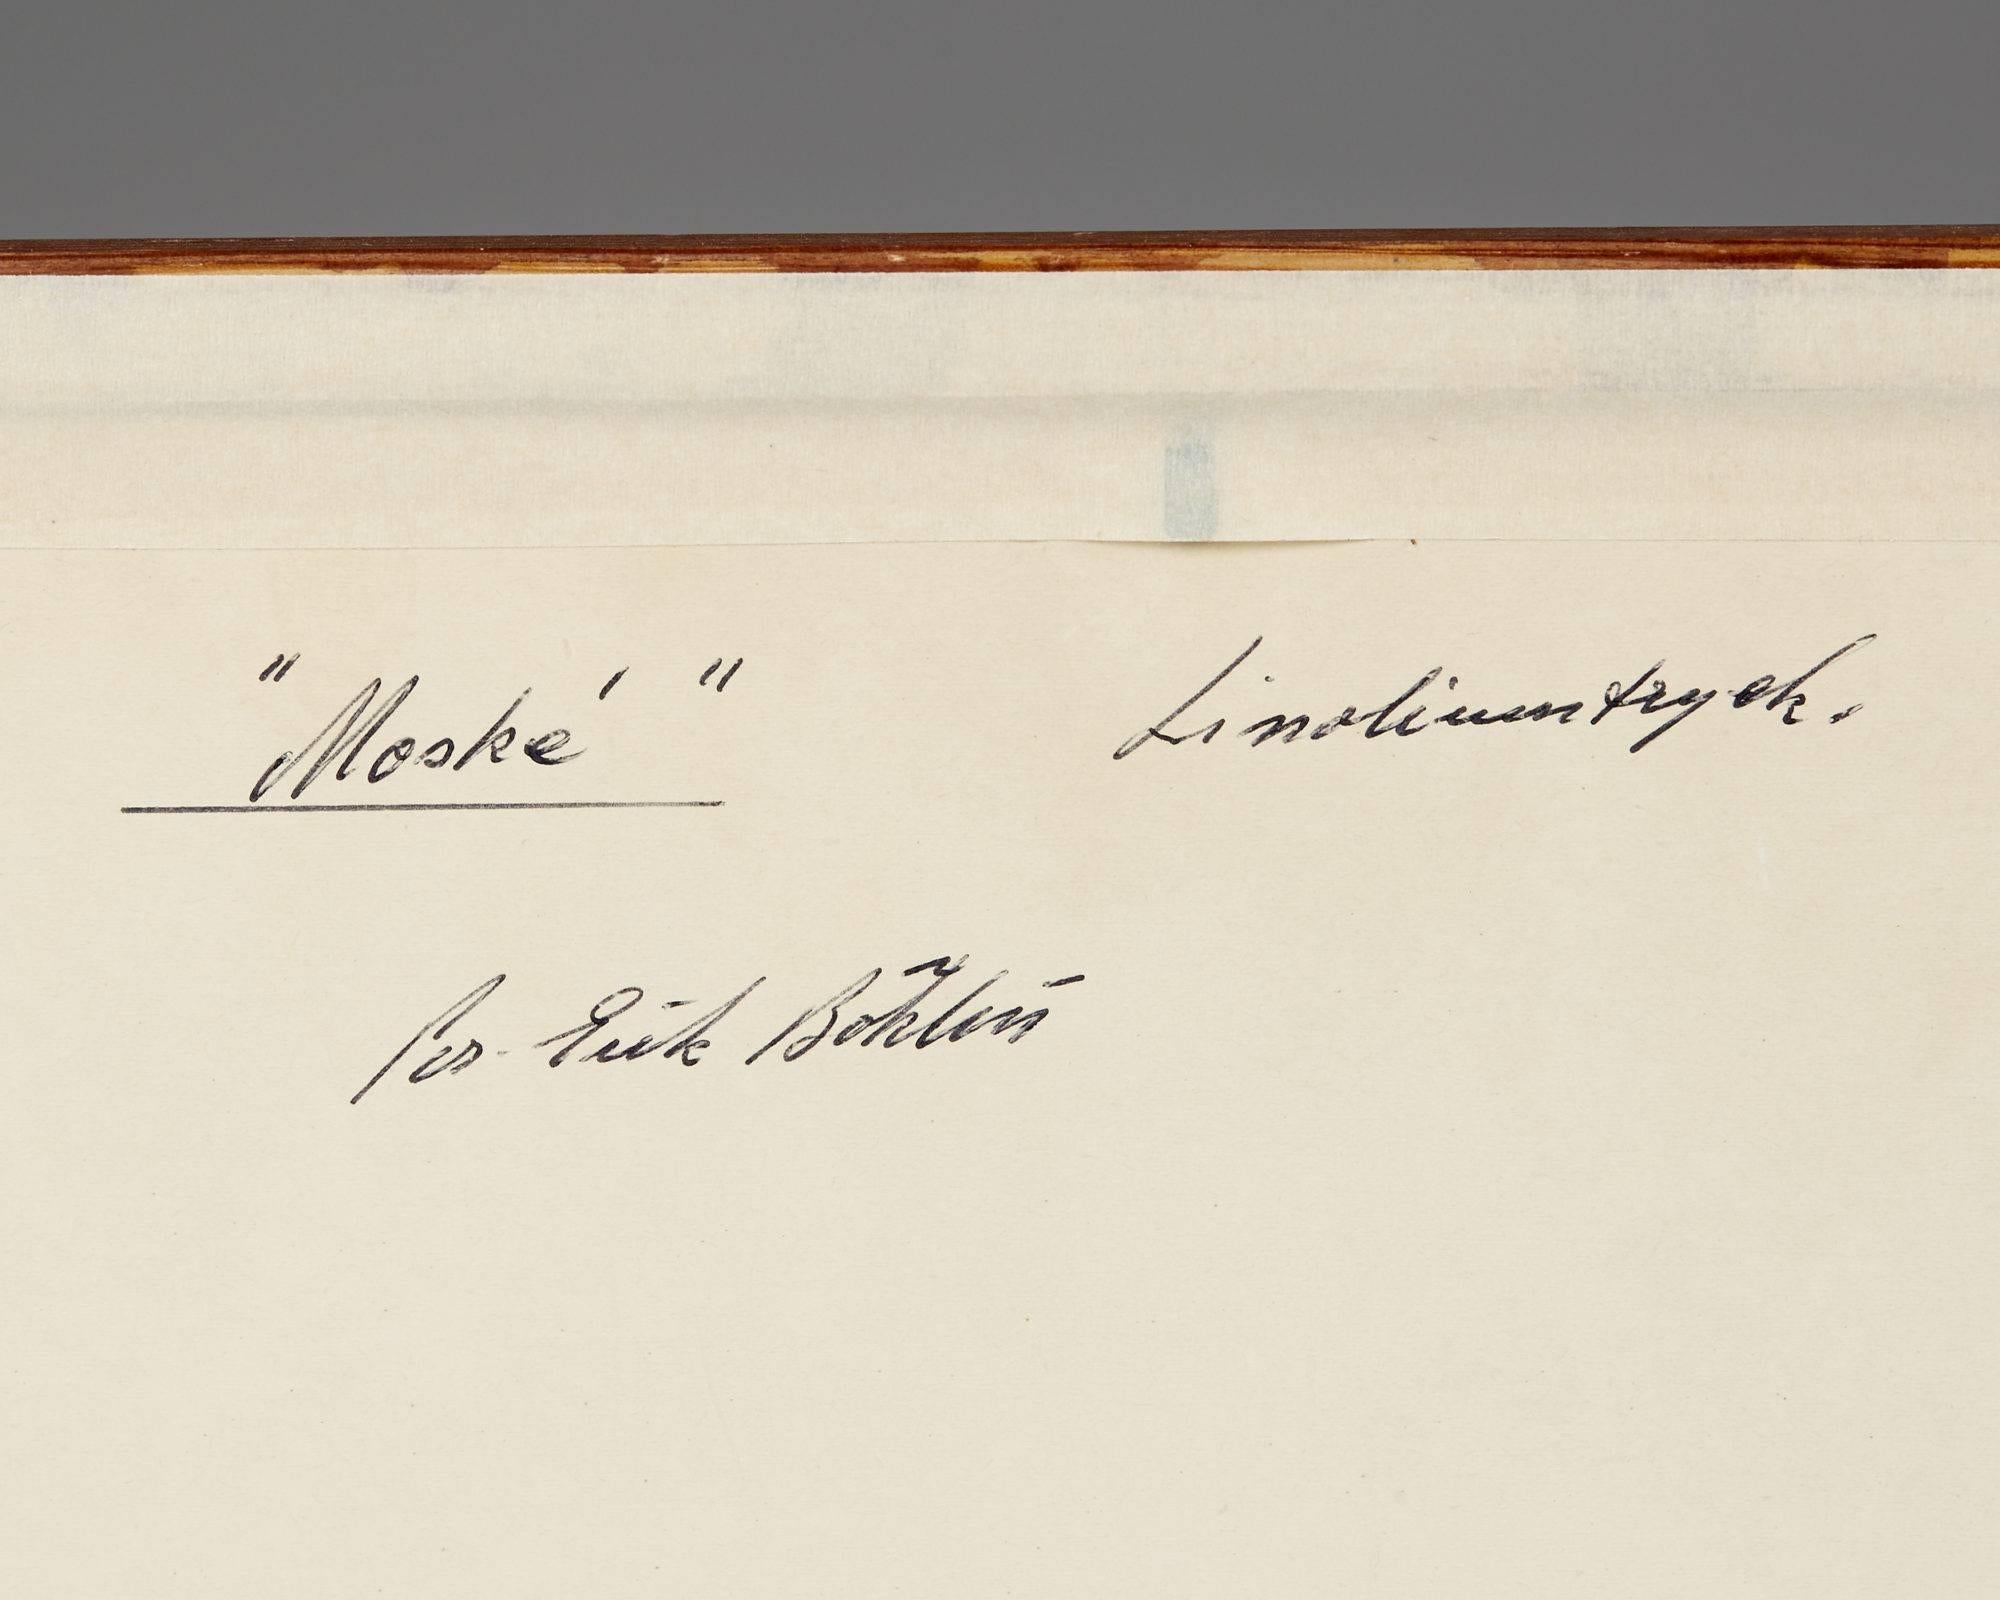 "Moské" Linoliumtryck.
Per-Erik Böhlin